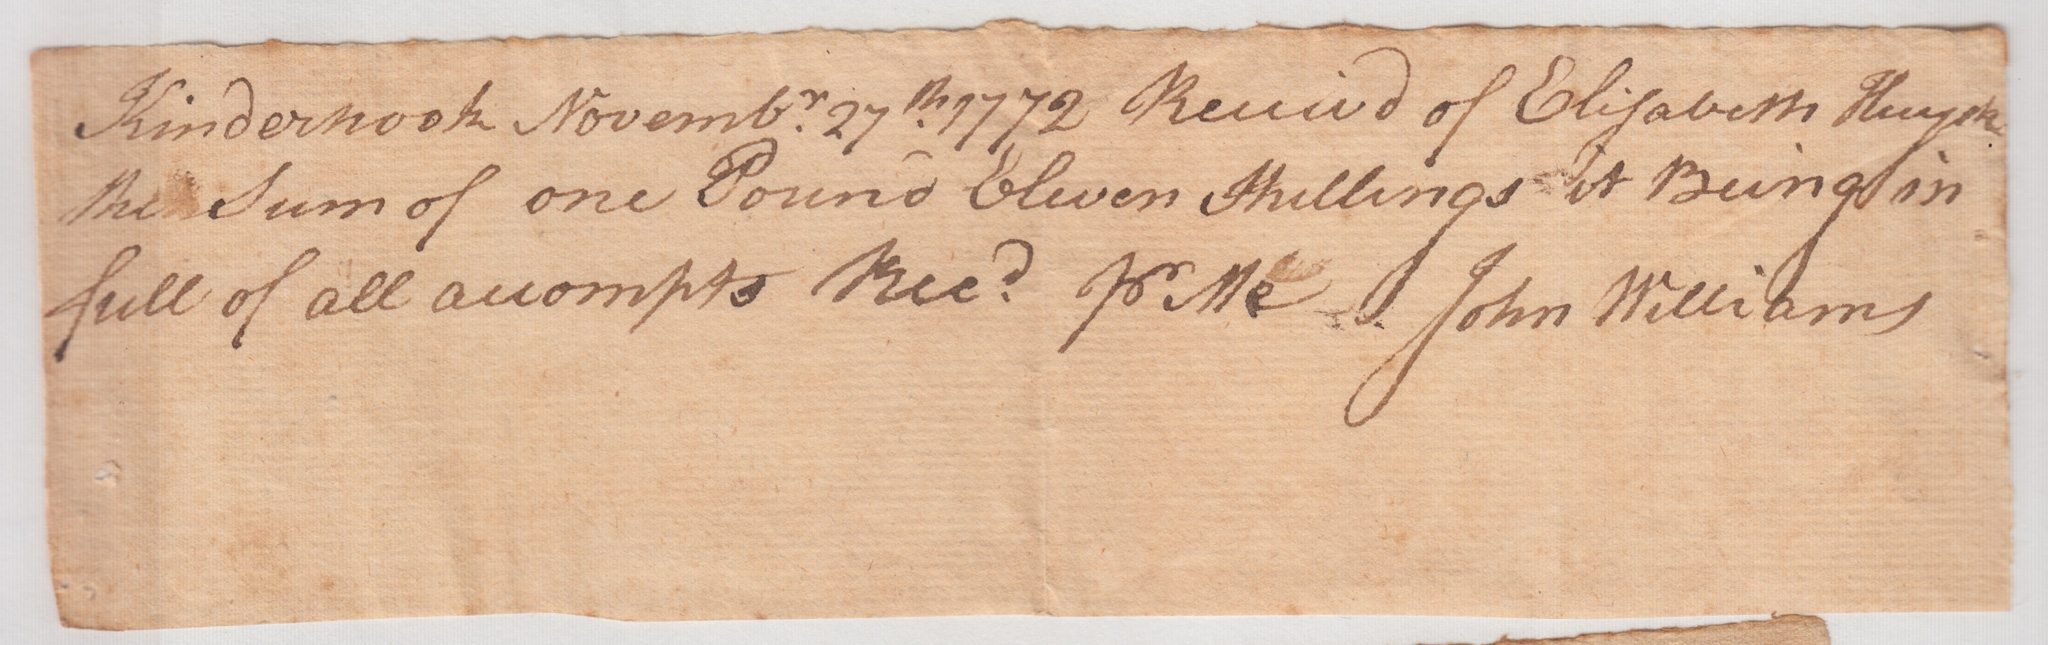 Kinderhook Novembr. 27th 1772 Receivd of Elisabeth
the Sum of one Pound Eleven Shillings it Being in
full of all accompts Recd. pr Me John Williams